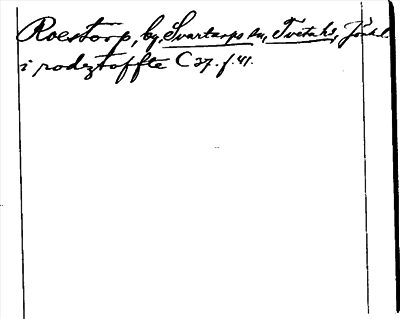 Roestorp, by, Svartarps sn, Tveta hd, Jönk. l.
i rodeztoffte C 27. f. 41.